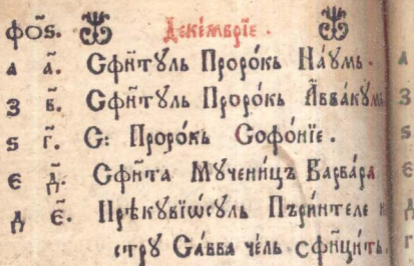 фо҃ѕ. Деке́мврїе.
а а҃. Сфн҃ту́ль Проро́кь На́ум.
з в҃. Сфн҃ту́ль Проро́кь Авва́кум
ѕ г҃. С: Проро́кь Софо́нїе.
є д҃. Сфн҃та Му́чениць Варва́ра
д є҃. Прѣкувїѡ́суль Пъри́нтеле
стру Са́вва че́ль сфнци́ть.